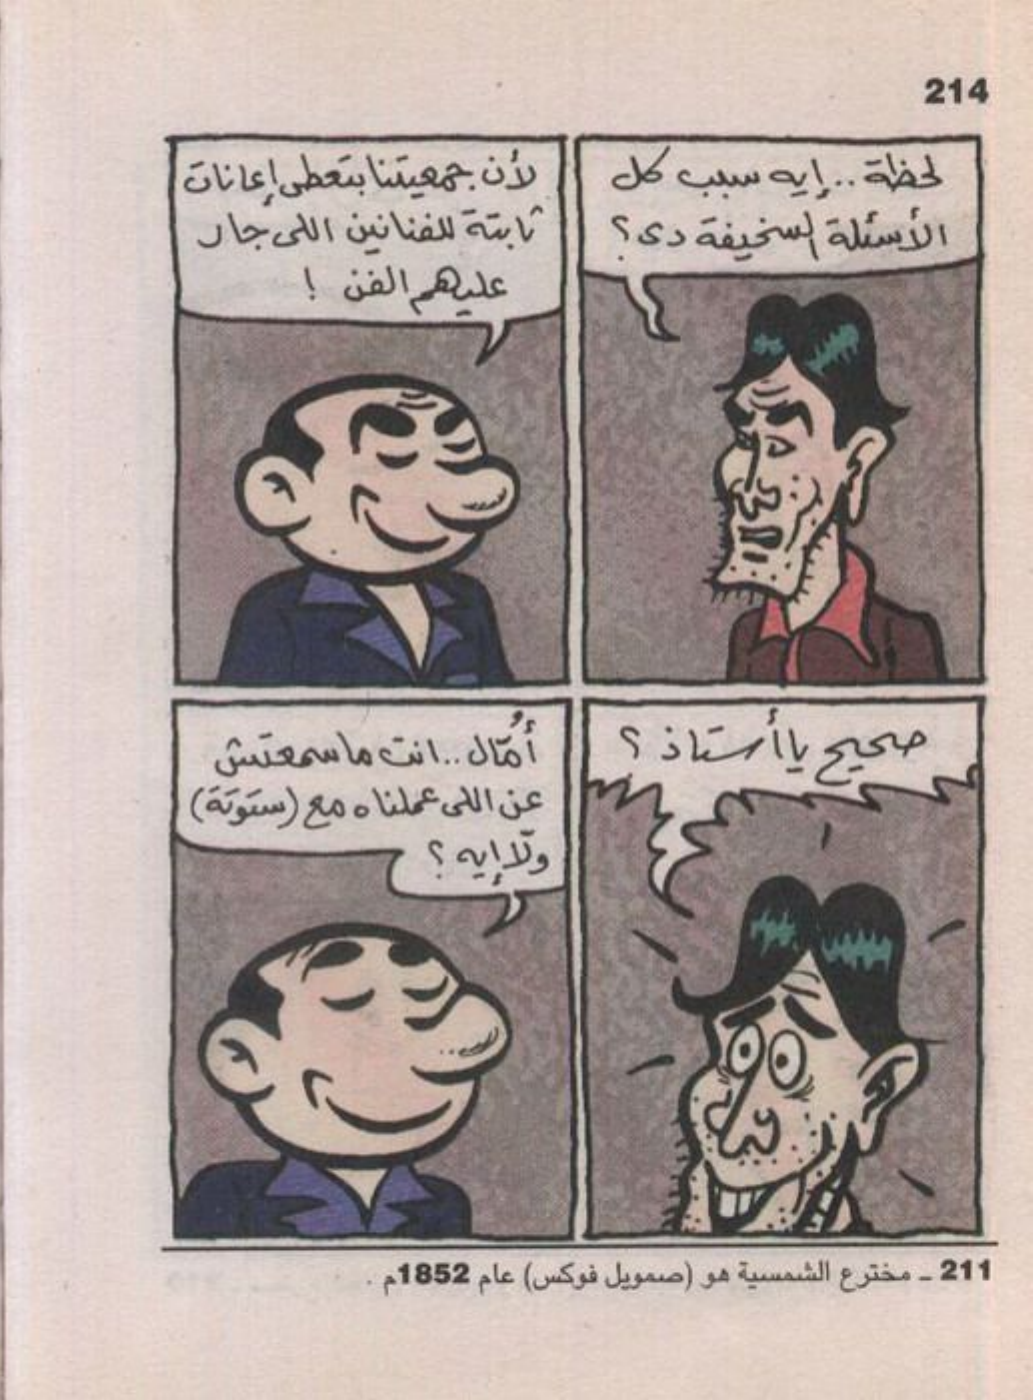 214
لحظة .. إيه سبب كل
الأسئلة السخيفة دى ؟
لأن جمعيتنا بتعطى إعانات
ثابتة للفنانين اللى جار
عليهم الفن !
صحيح يا أستاذ ؟
أُمّال .. انت ماسمعتش
عن اللى عملناه مع (ستوتة)
ولّا إيه ؟
211 ـ مخترع الشمسية هو (صمويل فوكس) عام 1852م .